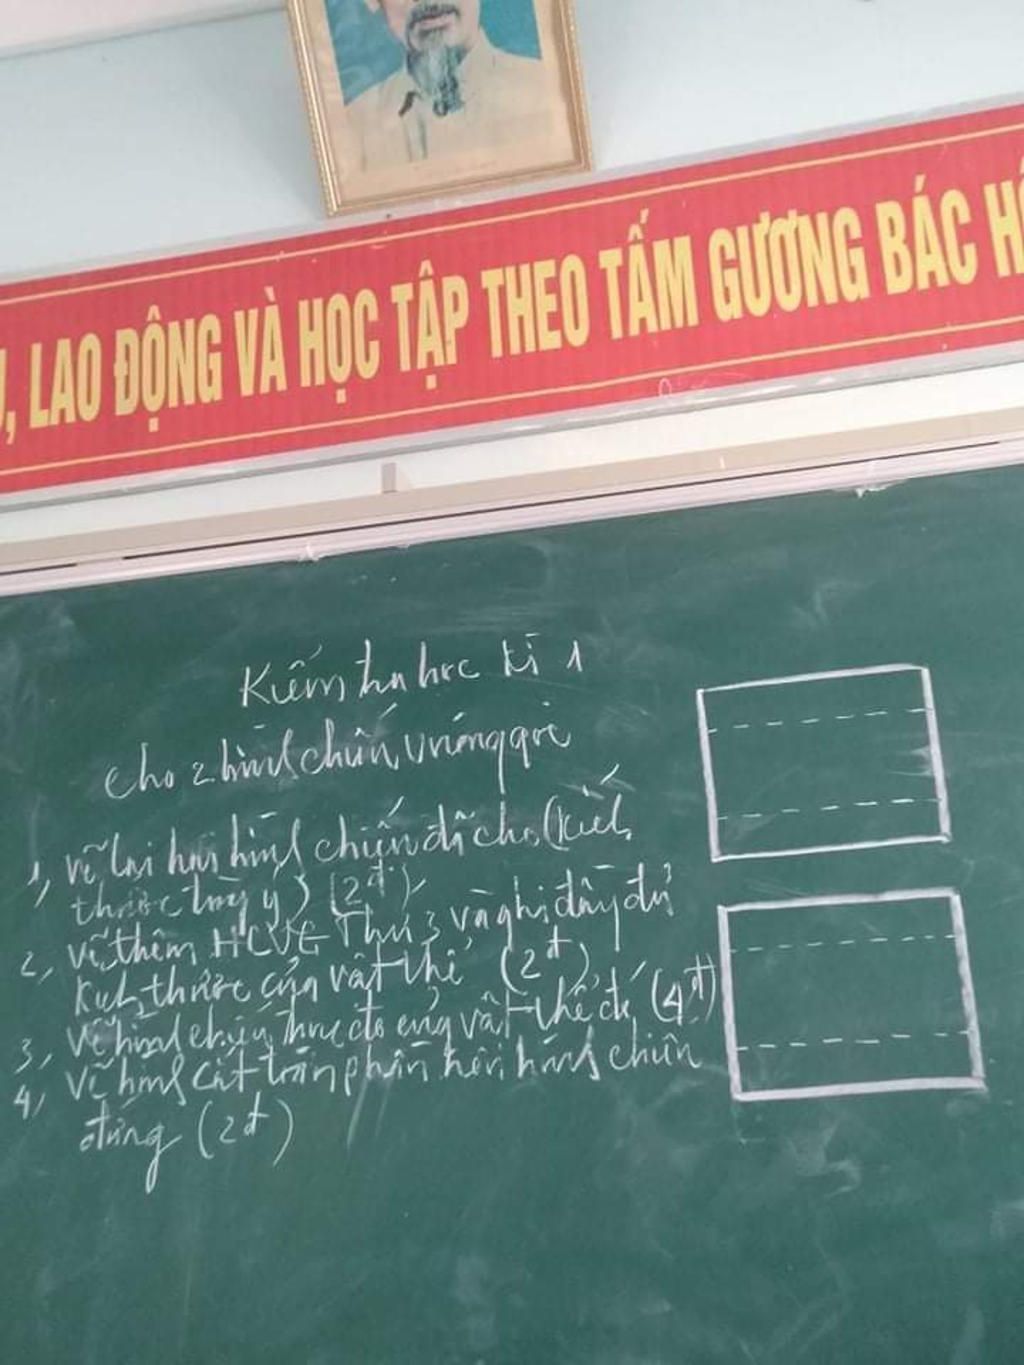 , LAO ĐỘNG VÀ HỌC TẬP THEO TẤM GƯƠNG BÁC H
Kiểm tra học kì 1
Cho 2 hình chiếu vuông góc
1, Vẽ lại hai hình chiếu đã cho (kích
thước tùy ý) (2đ)
2, Vẽ thêm HCVG Thứ 3 và ghi đầy đủ
kích thước của vật thể (2đ)
3, Vẽ hình chiếu trục đo của vật thể đó (4đ)
4, Vẽ hình cắt toàn phần trên hình chiếu
đứng (2đ)